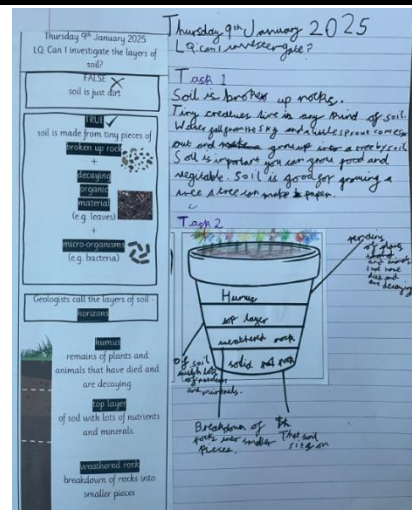 Thursday 9th January 2025
LQ. Can I investigate the layers of
soil?
FALSE
soil is just dirt
TRUE
soil is made from tiny pieces of
broken up rock
+
decaying
organic
material
(e.g. leaves)
+
micro-organisms
(e.g. bacteria)
Geologists call the layers of soil -
horizons
humus
remains of plants and
animals that have died and
are decaying
top layer
of soil with lots of nutrients
and minerals.
weathered rock
breakdown of rocks into
smaller pieces
Thursday 9th January 2025
LQ: can I investergate?
Task 1
Soil is broken up rocks.
Tiny creatures live in any kind of soil.
Water fall from the sky and a little sprout comes
out and grows up into a rocky soil
Soil is important you can grow food and
vegtable. Soil is good for growing a
tree a tree can make paper.
Task 2
Humus
top layer
weathered rock
solid rock
remains
of plants
and animals
that have
died and
are decaying
of soil
with lots
of nutrients
and minerals.
Breakdown of
rocks into smaller
pieces.
That soil
sits on